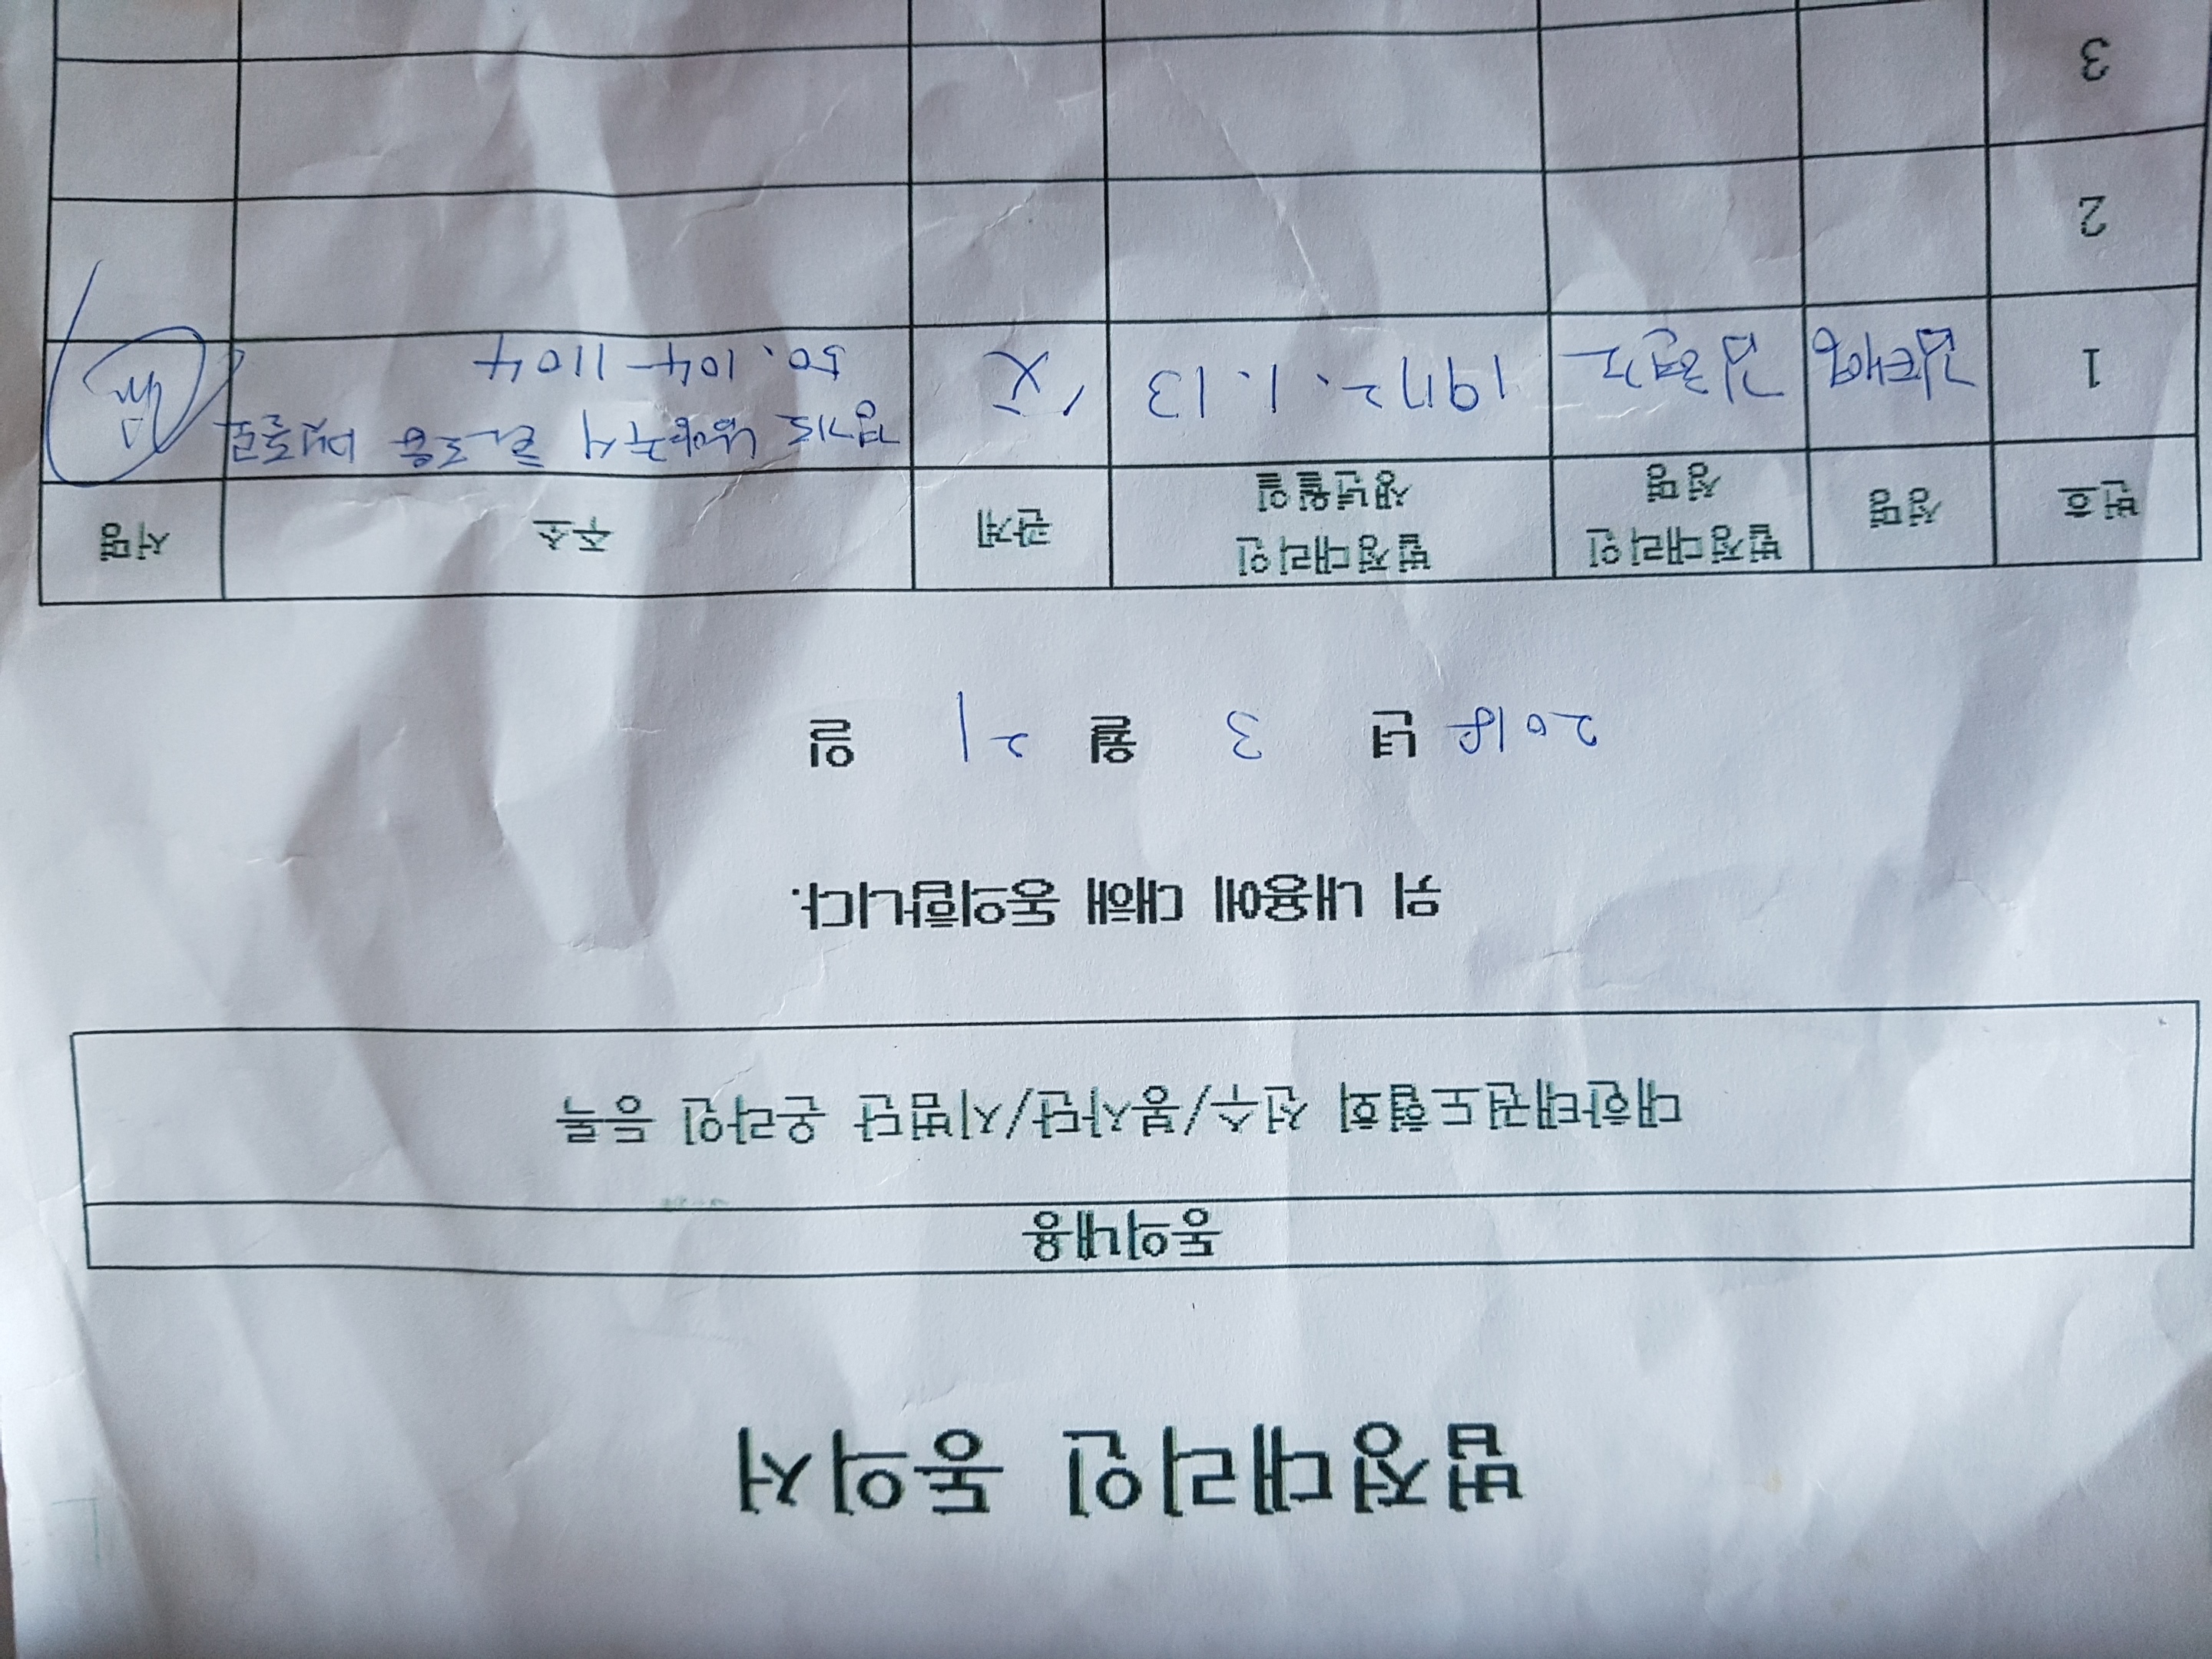 법정대리인 동의서
동의내용
대한태권도협회 선수/품사단/시범단 온라인 등록
위 내용에 대해 동의합니다.
2018 년 3 월 21 일
번호 성명 법정대리인 성명 법정대리인 생년월일 관계 주소 서명
1 김태영 1972.1.13 父 경기도 남양주시 대로
50. 104-1104
2
3